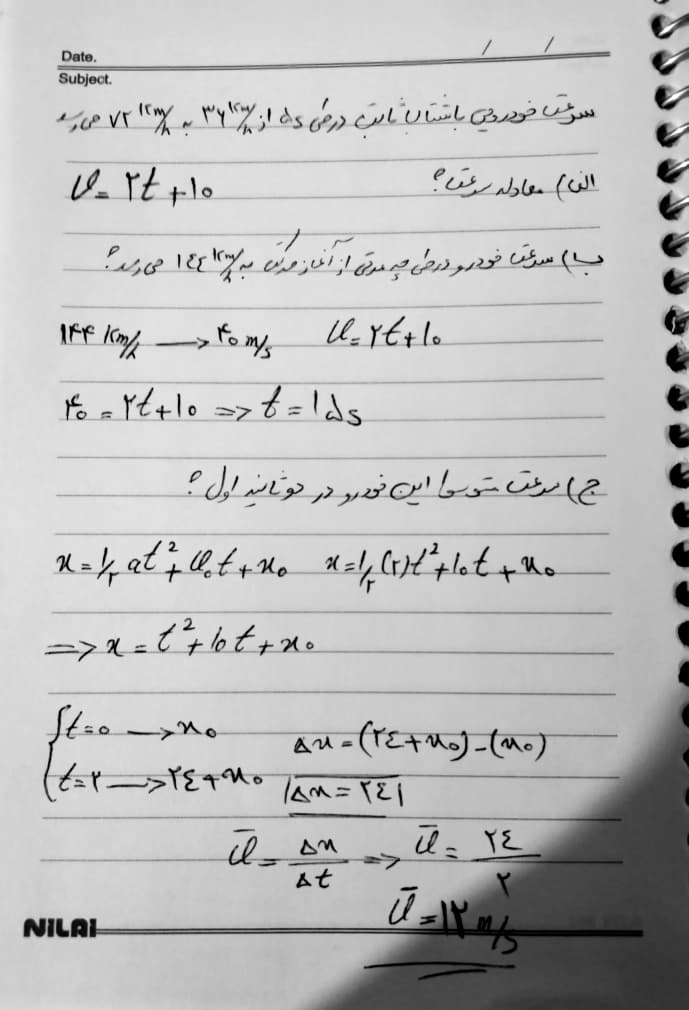 Date. / /
Subject.
سرعت خودرویی با شتاب ثابت در طی ۵s از ۳۶ km/h به ۷۲ km/h می‌رسد
الف) معادله سرعت؟ v = ۲t + ۱۰
ب) سرعت خودرو در طی چه مدتی از آغاز حرکت به ۱۴۴ km/h می‌رسد؟
۱۴۴ km/h → ۴۰ m/s v = ۲t + ۱۰
۴۰ = ۲t + ۱۰ => t = ۱۵s
ج) سرعت متوسط این خودرو در دو ثانیه اول؟
x = ۱/۲ at² + v₀t + x₀ x = ۱/۲ (۲)t² + ۱۰t + x₀
=> x = t² + ۱۰t + x₀
t = ۰ → x₀ Δx = (۲۴ + x₀) - (x₀)
t = ۲ → ۲۴ + x₀ |Δx = ۲۴|
v̄ = Δx/Δt => v̄ = ۲۴/۲
v̄ = ۱۲ m/s
NILAI